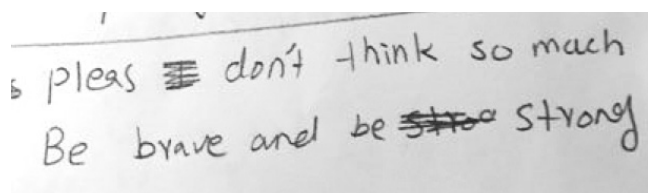 pleas don't think so much
Be brave and be strong